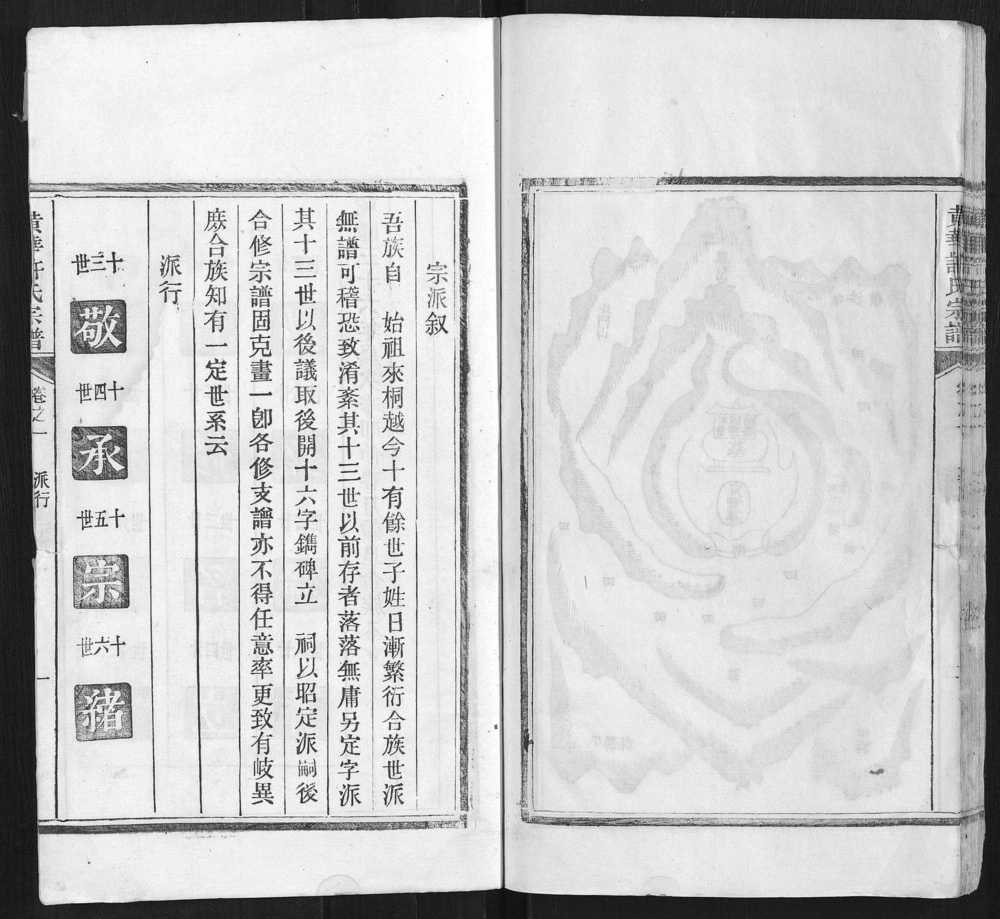 黃華許氏宗譜
宗派叙
吾族自　始祖來桐越今十有餘世子姓日漸繁衍合族世派
無譜可稽恐致淆紊其十三世以前存者落落無庸另定字派
其十三世以後議取後開十六字鐫碑立　祠以昭定派嗣後
合修宗譜固克畫一卽各修支譜亦不得任意率更致有岐異
庶合族知有一定世系云
派行
十三世
敬
十四世
承
十五世
崇
十六世
緒
黃華許氏宗譜
卷之一
派行
一